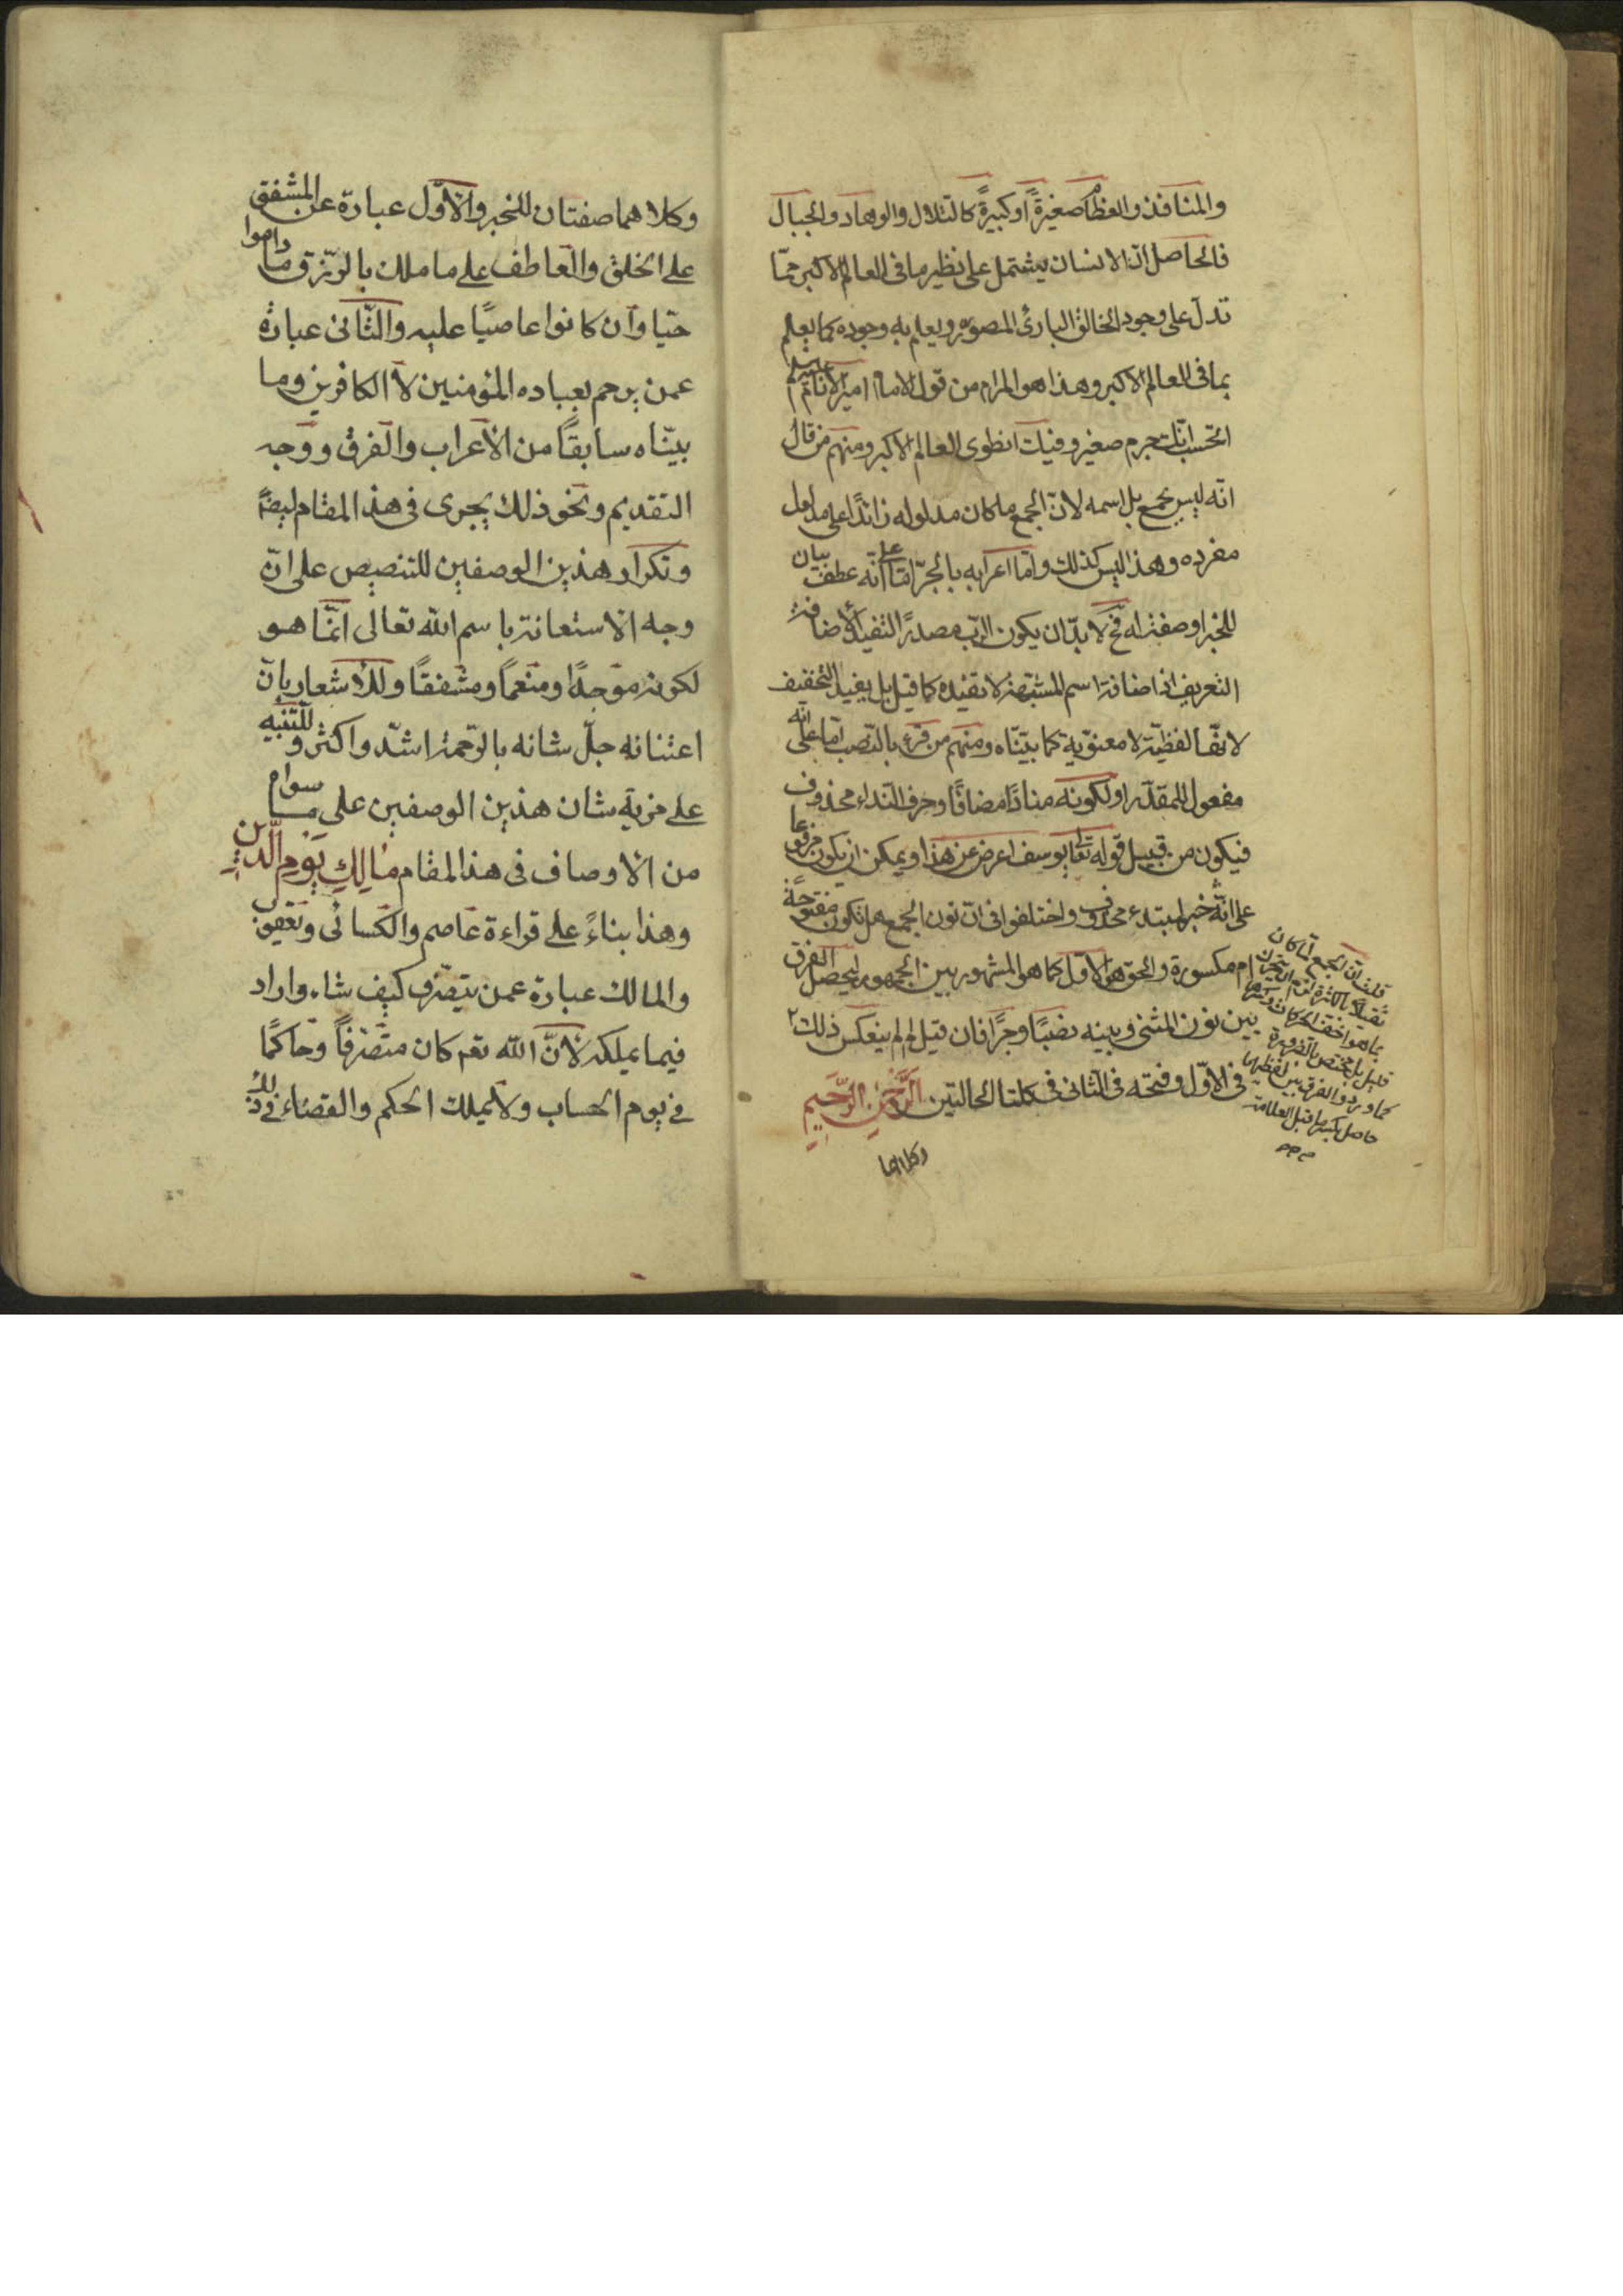 والمنافذ والعظام صغيرةً او كبيرةً كالتلال والوهاد والجبال
فالحاصل انّ الانسان يشتمل على نظير ما فى العالم الاكبر ممّا
تدلّ على وجود الخالق البارئ المصوّر ويعلم به وجوده كما يعلم
بما فى العالم الاكبر وهذا هو المرام من قول الامام امير الانام
اتحسب انّك جرم صغير وفيك انطوى العالم الاكبر ومنهم من قال
انّه ليس بجمع بل اسمه لانّ الجمع ما كان مدلوله زائدًا على مدلول
مفرده وهذا ليس كذلك وامّا اعرابه بالجرّ امّا على انّه عطف بيان
للخبر او صفة له فح لا بدّ ان يكون الربّ مصدرًا لتفيد الاضافة
التعريف اذ اضافة اسم المشبّهة لا تفيده كما قيل بل يفيد التخفيف
لانّها لفظيّة لا معنويّة كما بيّنّاه ومنهم من قرء بالنّصب امّا على انّه
مفعول للمقدّر او لكونه منادًا مضافًا وحرف النّداء محذوف
فيكون من قبيل قوله تعا يوسف اعرض عن هذا ويمكن ان يكون مرفوعا
على انّه خبر لمبتدء محذوف واختلفوا فى انّ نون الجمع هل تكون مفتوحة
ام مكسورة والحق هو الاول كما هو المشهور بين الجمهور ليحصل الفرق
بين نون المثنى وبينه نصبًا وجرًّا فان قيل لم لم ينعكس ذلك
فى الاوّل وفتحه فى الثانى فى كلتا الحالتين الرَّحْمٰنِ الرَّحِيمِ
قلت انّ الجمع لمّا كان
ثقيلًا بالكثرة لزم ان يتحرّك
بما هو اخفّ الحركات
قليل بل مختص بالضرورة
كما ورد والفرق بين لفظيهما
حاصل بكسر ما قبل العلامة
وكلاهما
وكلاهما صفتان للخبر والاوّل عبارة عن المشفق
على الخلق والعاطف على ما ملك بالرّزق ما داموا
حيّا وان كانوا عاصيًا عليه والثّانى عبارة
عمن يرحم بعباده المؤمنين لا الكافرين وما
بيّنّاه سابقًا من الاعراب والفرق ووجه
التقديم ونحو ذلك يجرى فى هذا المقام ايضًا
وتكرار هذين الوصفين للتنصيص على انّ
وجه الاستعانة باسم الله تعالى انّما هو
لكونه موجدًا ومنعمًا ومشفقًا وللاشعار بانّ
اعتنانه جلّ شانه بالرّحمة اشدّ واكثر وللتّنبيه
على مزية شان هذين الوصفين على ما سواهم
من الاوصاف فى هذا المقام مَالِكِ يَوْمِ الدّينِ
وهذا بناءً على قراءة عاصم والكسائى ويعقوب
والمالك عبارة عمن يتصرّف كيف شاء واراد
فيما يملكه لانّ الله تعم كان متصرّفًا وحاكمًا
فى يوم الحساب ولا يملك الحكم والقضاء فى ذلك